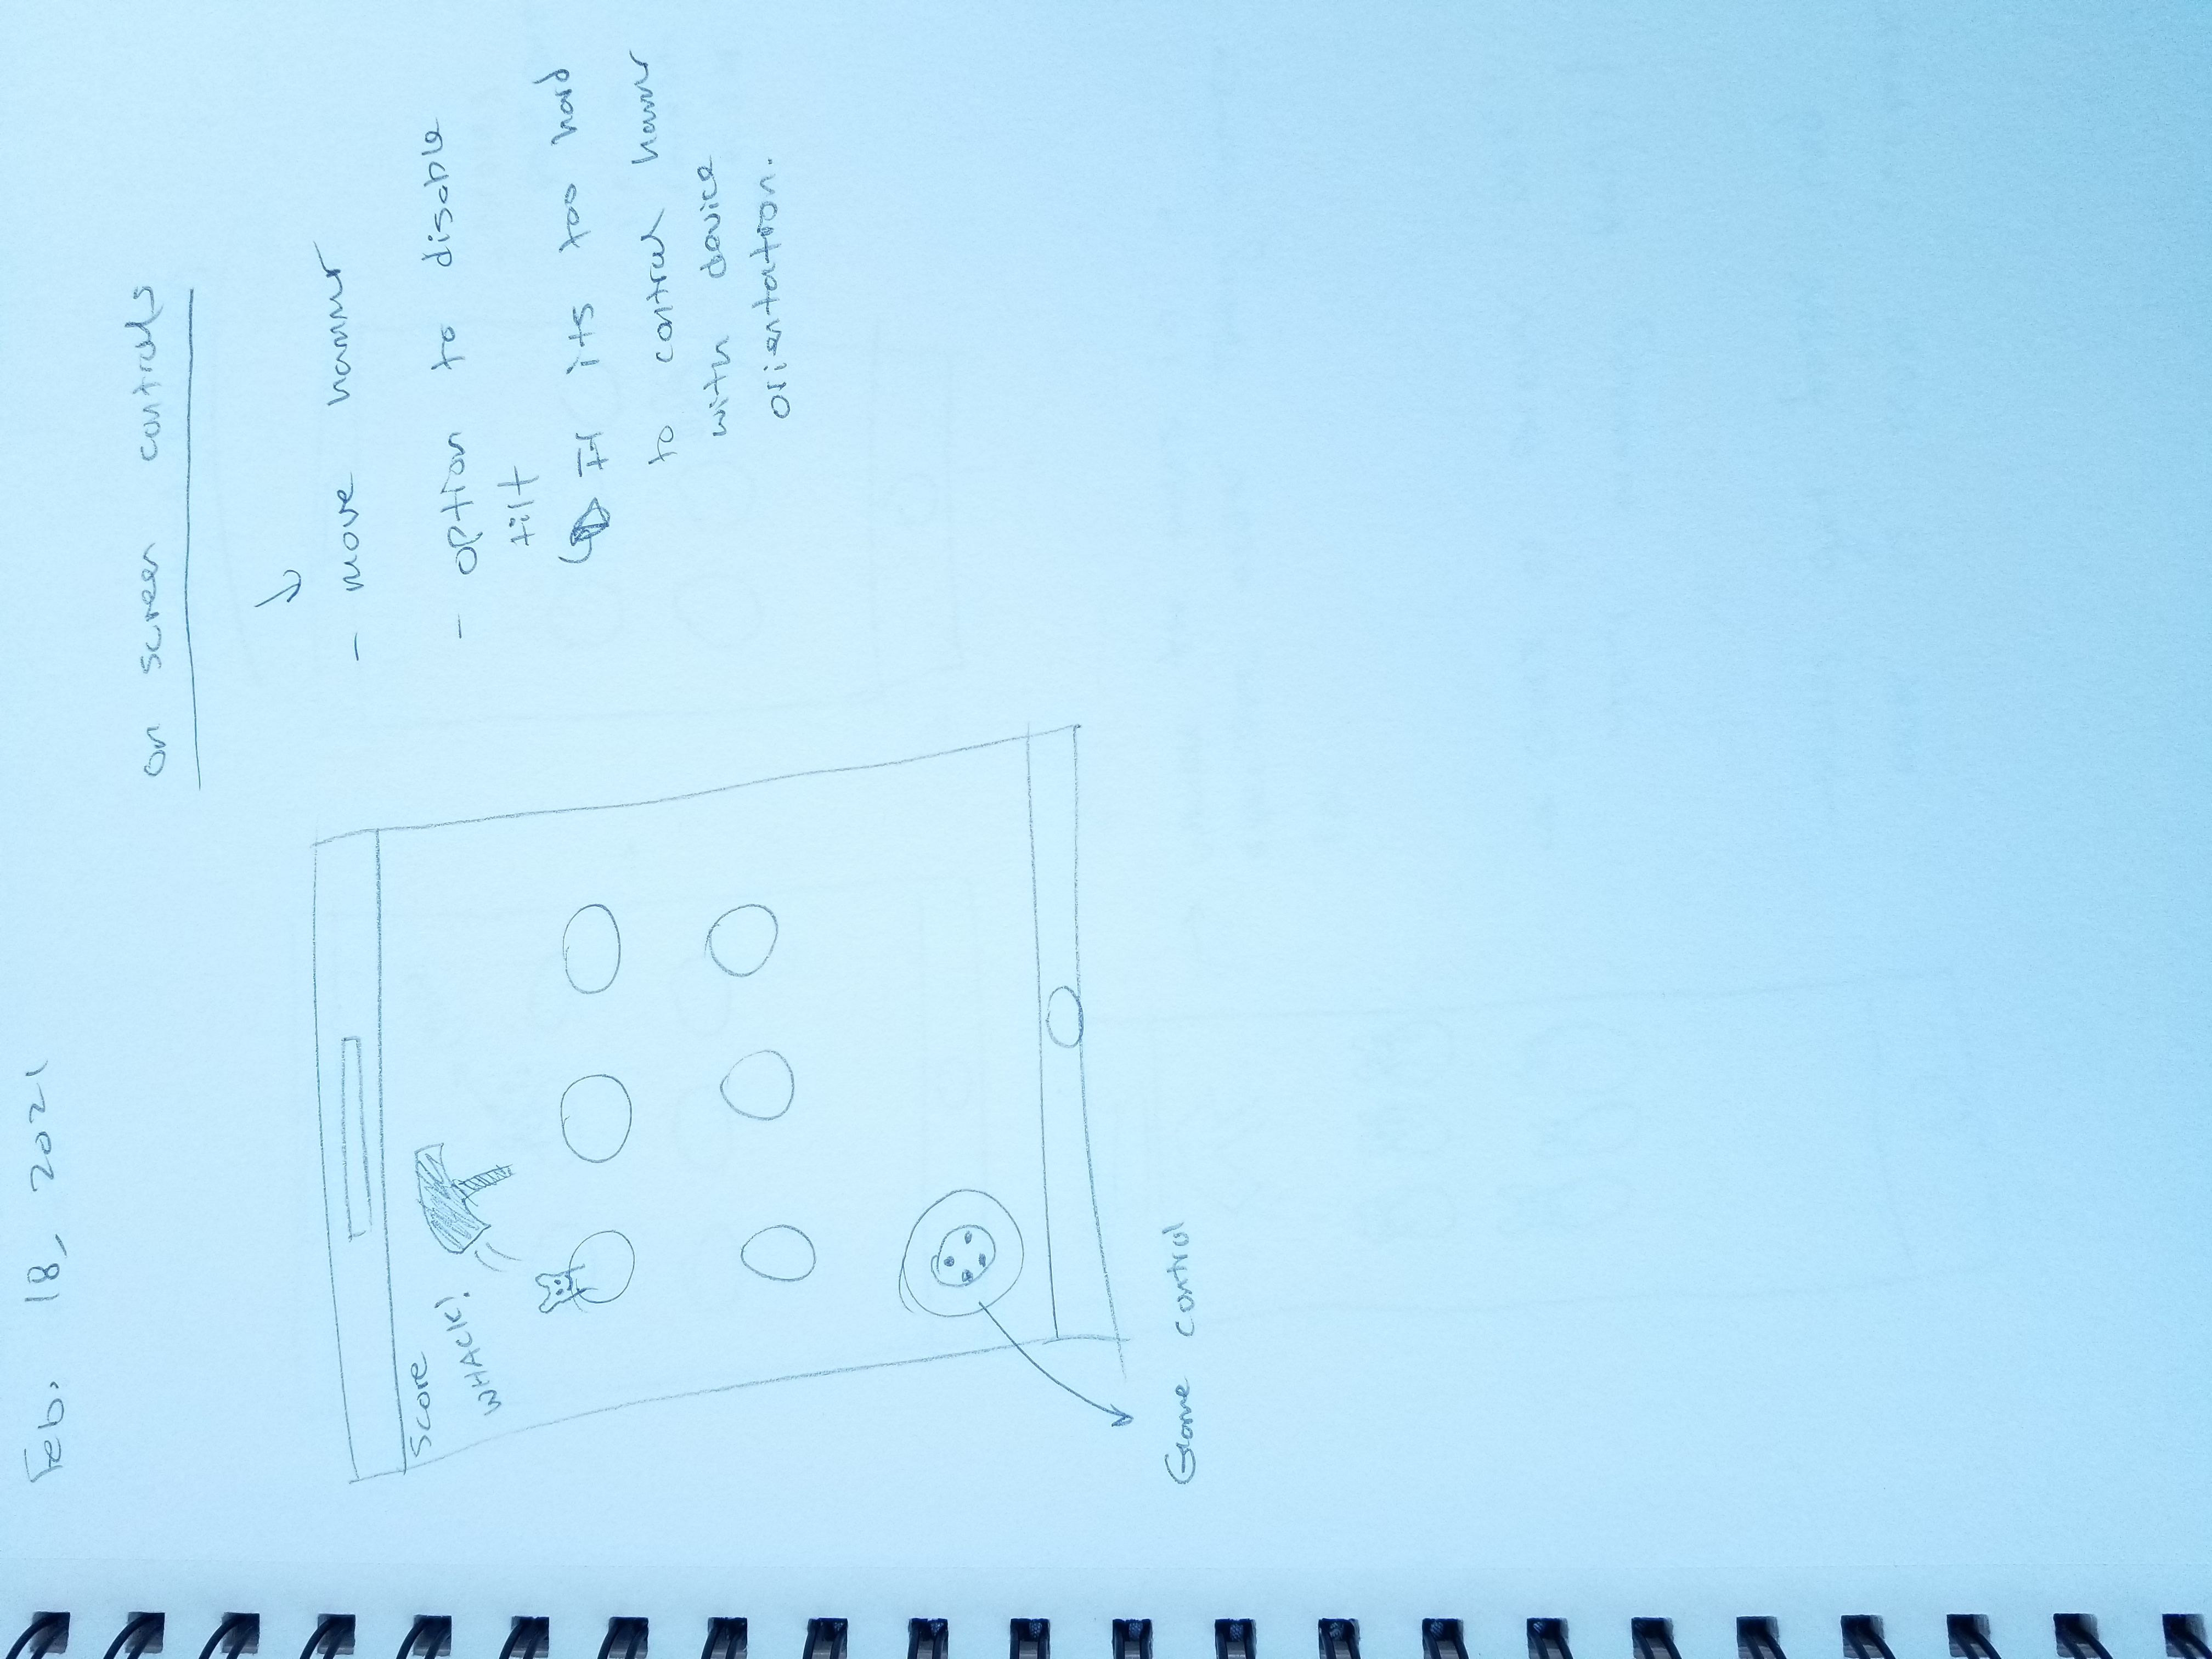 Feb. 18, 2021
on screen controls
- move hammer
- option to disable
tilt
If its too hard
to control hammer
with device
orientation.
Score
WHACK!
Game control